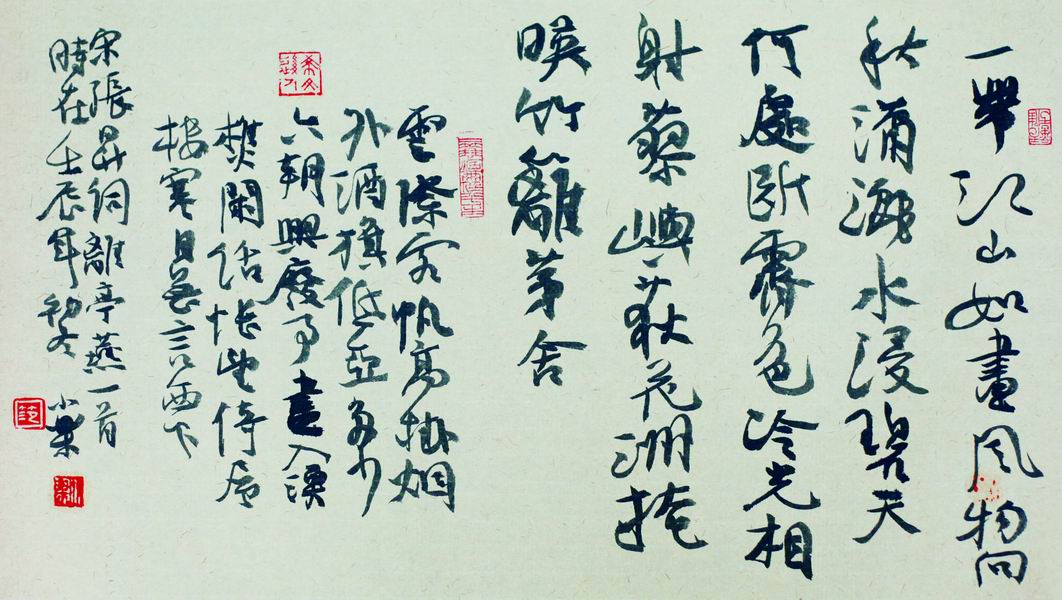 一帶江山如畫風物向
秋瀟灑水浸碧天
何處斷霽色冷光相
射蓼嶼荻花洲掩
暎竹籬茅舍
雲際客帆高掛烟
外酒旗低亞多少
六朝興廢事盡入漁
樵閑話悵望倚層
樓寒日無言西下
宋張昇詞離亭燕一首
時在壬辰年初冬 小果